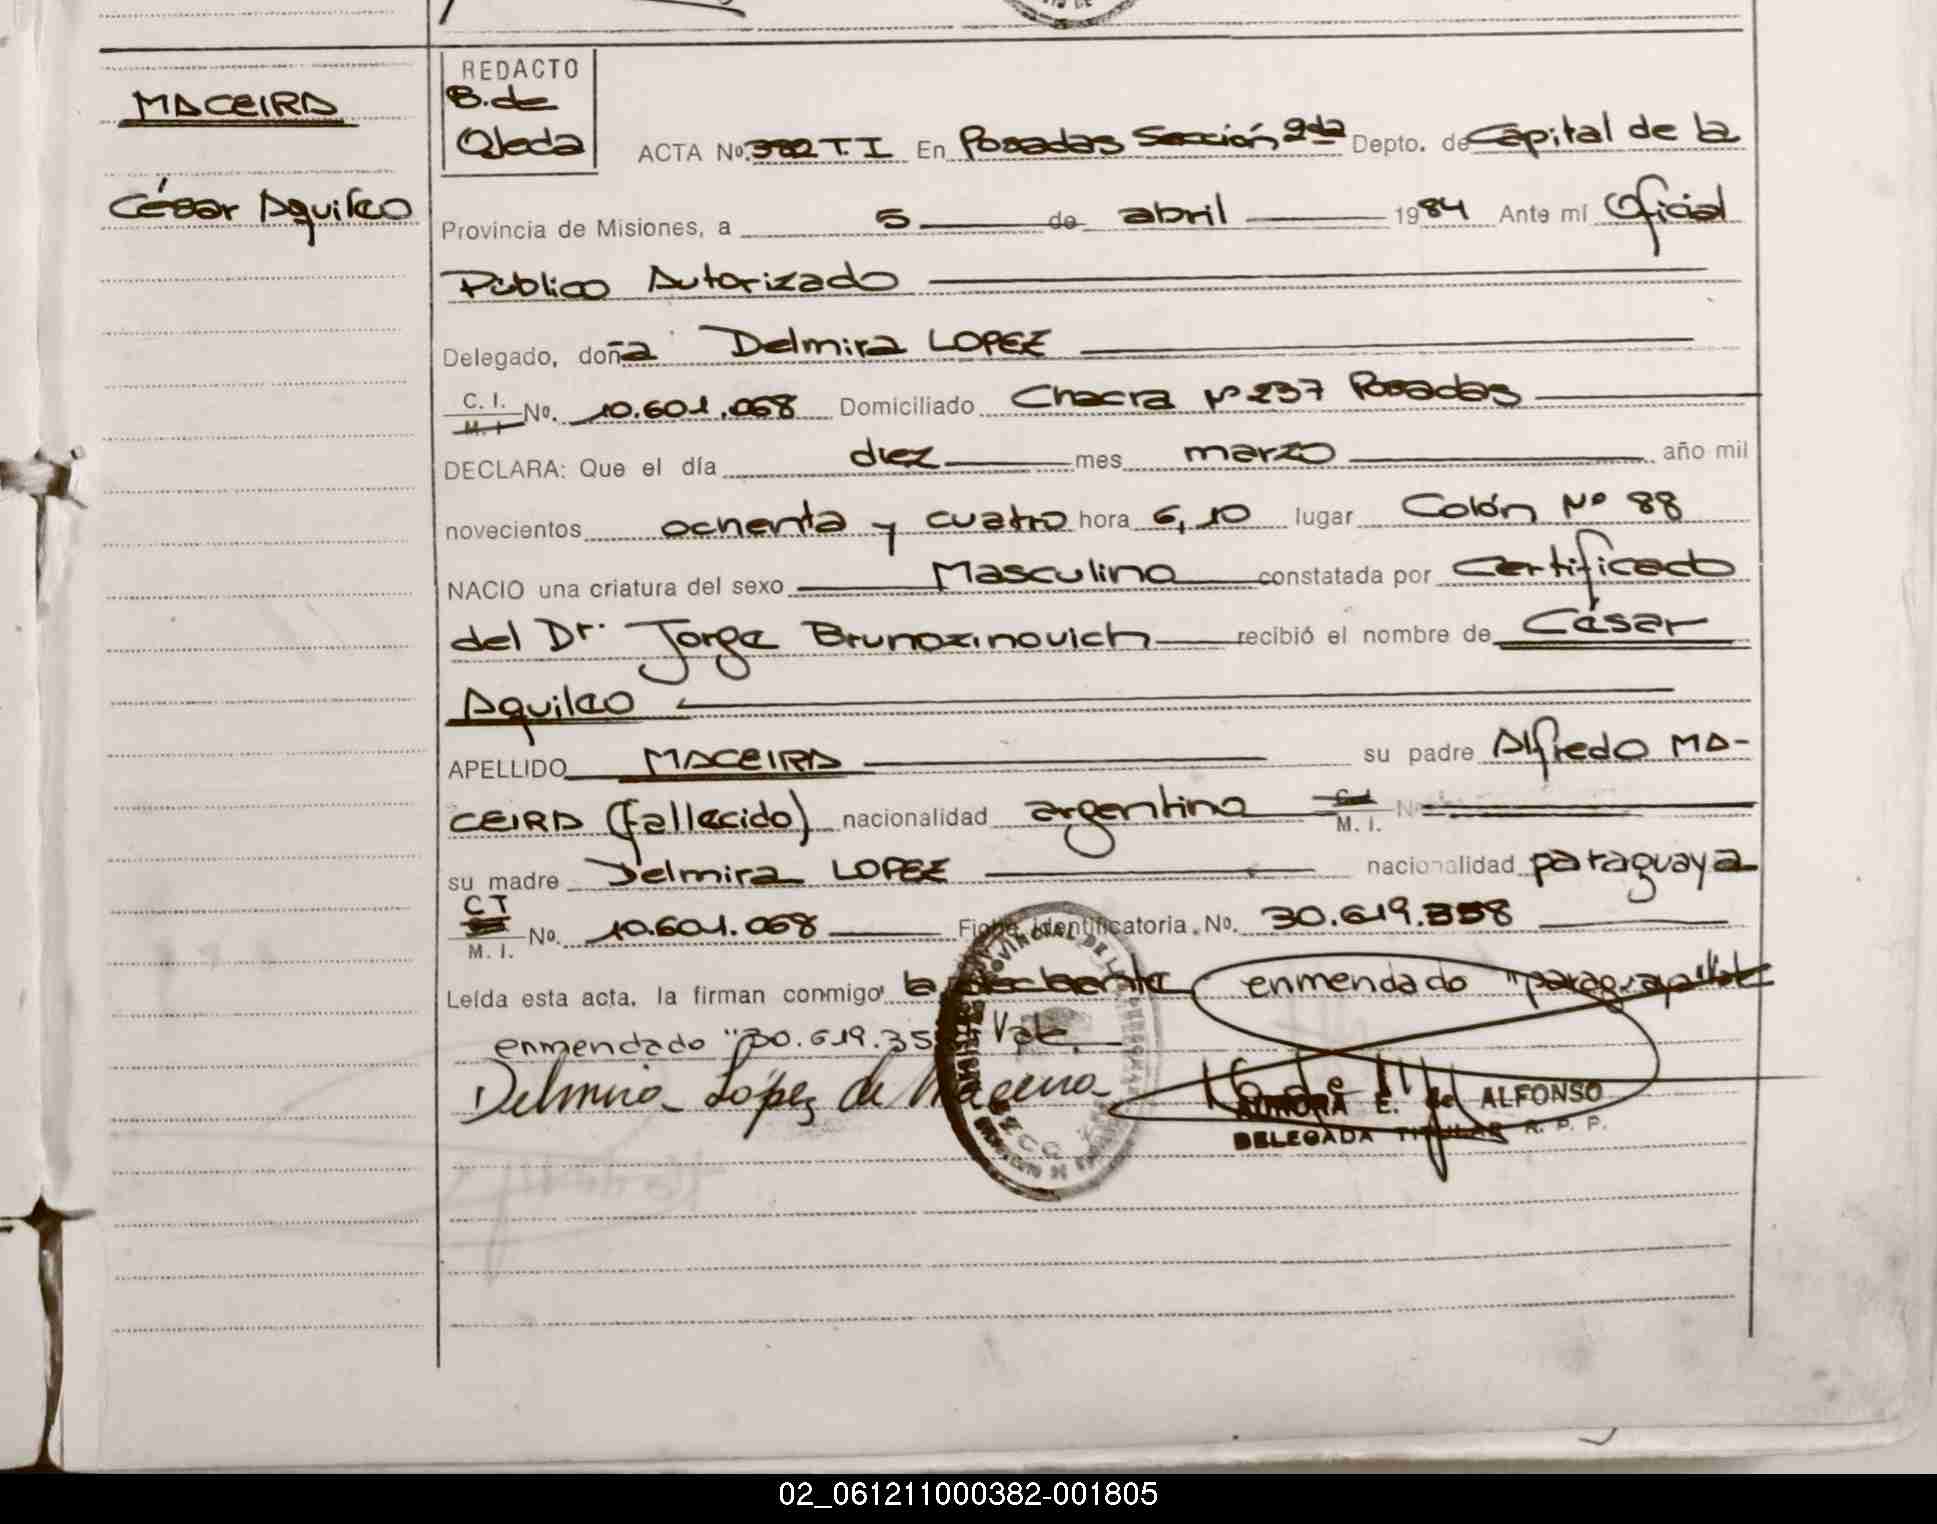 MACEIRA
César Aquileo
REDACTO
B. de
Ojeda
ACTA Nº 382 T. I En Posadas Sección 2da Depto. de Capital de la
Provincia de Misiones, a 5 de abril 1984 Ante mi Oficial
Público Autorizado
Delegado, doña Delmira LOPEZ
C. I. M. I Nº. 10.601.068 Domiciliado Chacra Nº 237 Posadas
DECLARA: Que el día diez mes marzo año mil
novecientos ochenta y cuatro hora 6,10 lugar Colón Nº 88
NACIO una criatura del sexo Masculino constatada por Certificado
del Dr. Jorge Brunozinovich recibió el nombre de César
Aquileo
APELLIDO MACEIRA su padre Alfredo MA-
CEIRA (fallecido) nacionalidad argentino C. I. M. I. Nº
su madre Delmira LOPEZ nacionalidad paraguaya
CI M. I. Nº. 10.601.068 Ficha Identificatoria Nº. 30.619.358
Leída esta acta, la firman conmigo la declarante enmendado "paraguaya" Vale
enmendado "30.619.35 Vale.
Delmira López de Maceira
AURORA E. de ALFONSO
DELEGADA TITULAR R. P. P.
02_061211000382-001805